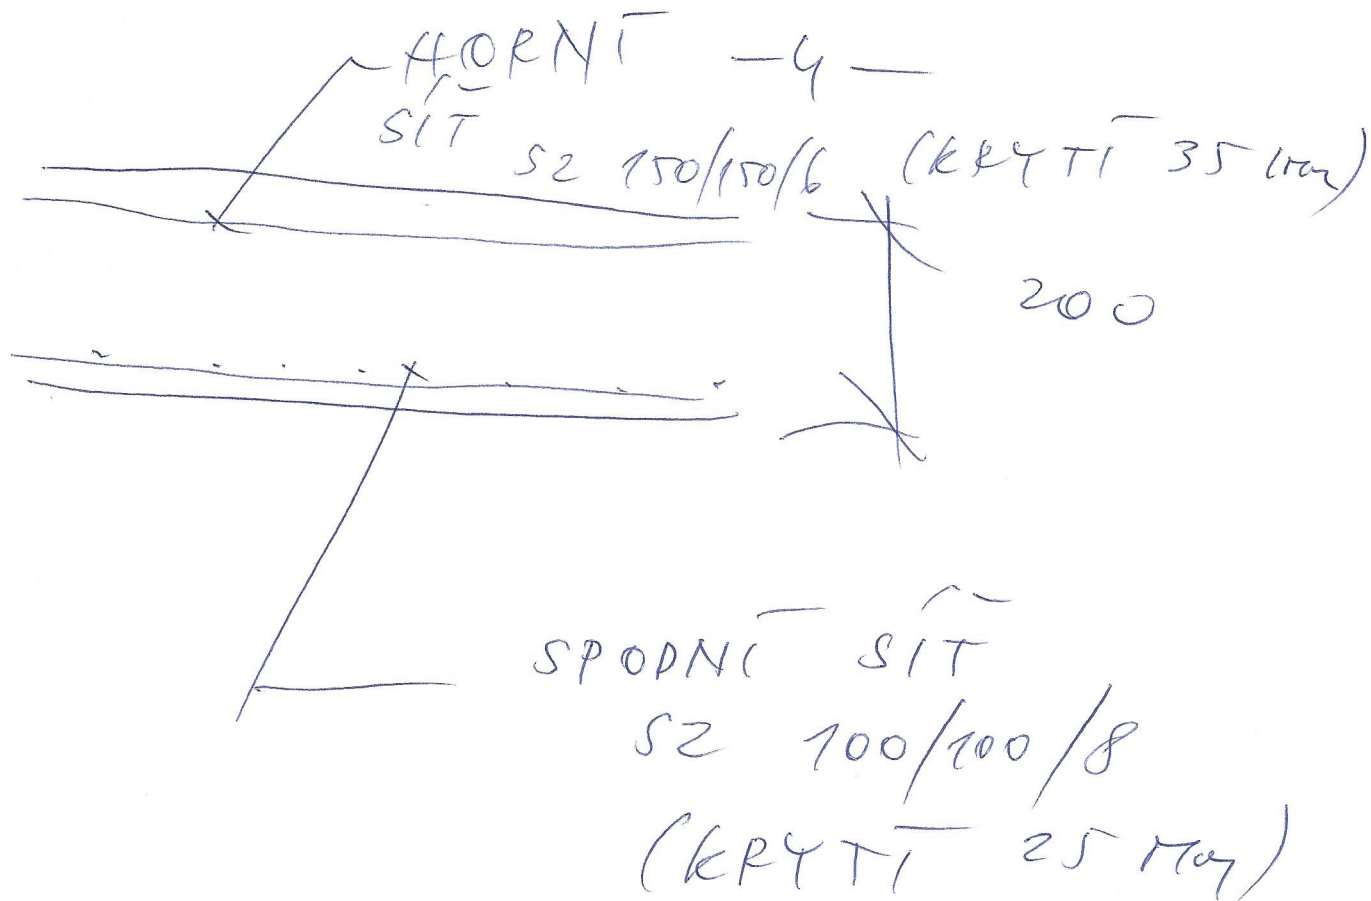 HORNÍ -4-
SÍŤ
SZ 150/150/6 (KRYTÍ 35 mm)
200
SPODNÍ SÍŤ
SZ 100/100/8
(KRYTÍ 25 mm)